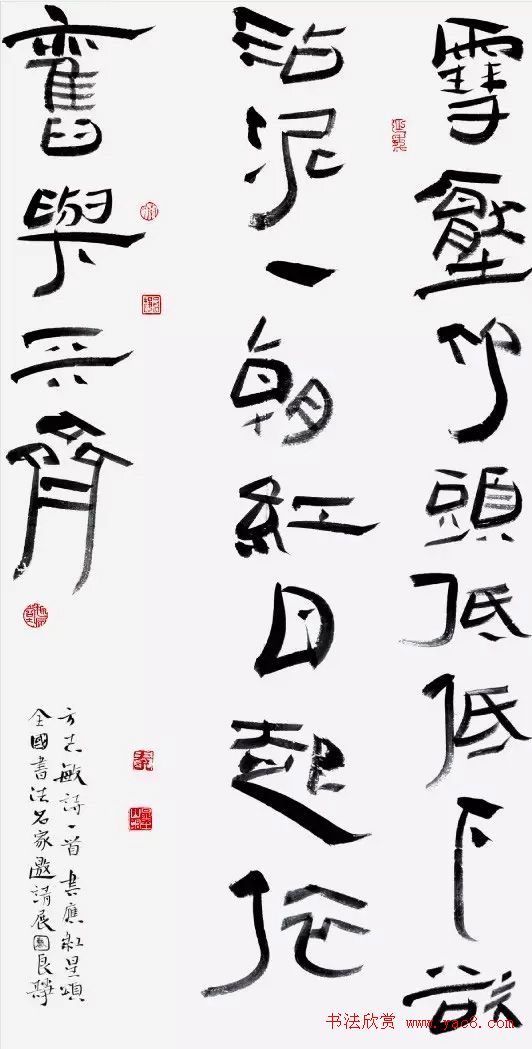 雪壓竹頭低低下欲
沾泥一朝紅日起依
舊與天齊
方志敏詩一首書應紅星頌
全國書法名家邀請展國良
书法欣赏 www.yac8.com